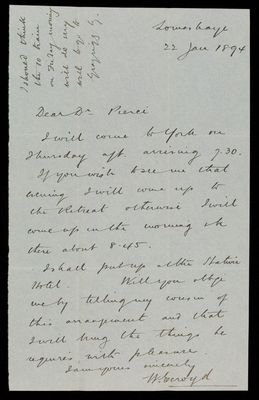 I should think
the 10 train
on Friday morning
will do very
well to go to
22 Jan 1894
Dear Dr Pierce
I will come to York on
Thursday aft. arriving 7.30.
If you wish to see me that
evening I will come up to
the Retreat otherwise I will
come up in the morning
there about 8.45.
I shall put up at the Station
Hotel. Will you oblige
me by telling my cousin of
this arrangement and that
I will bring the things he
requires with pleasure.
I am yours sincerely